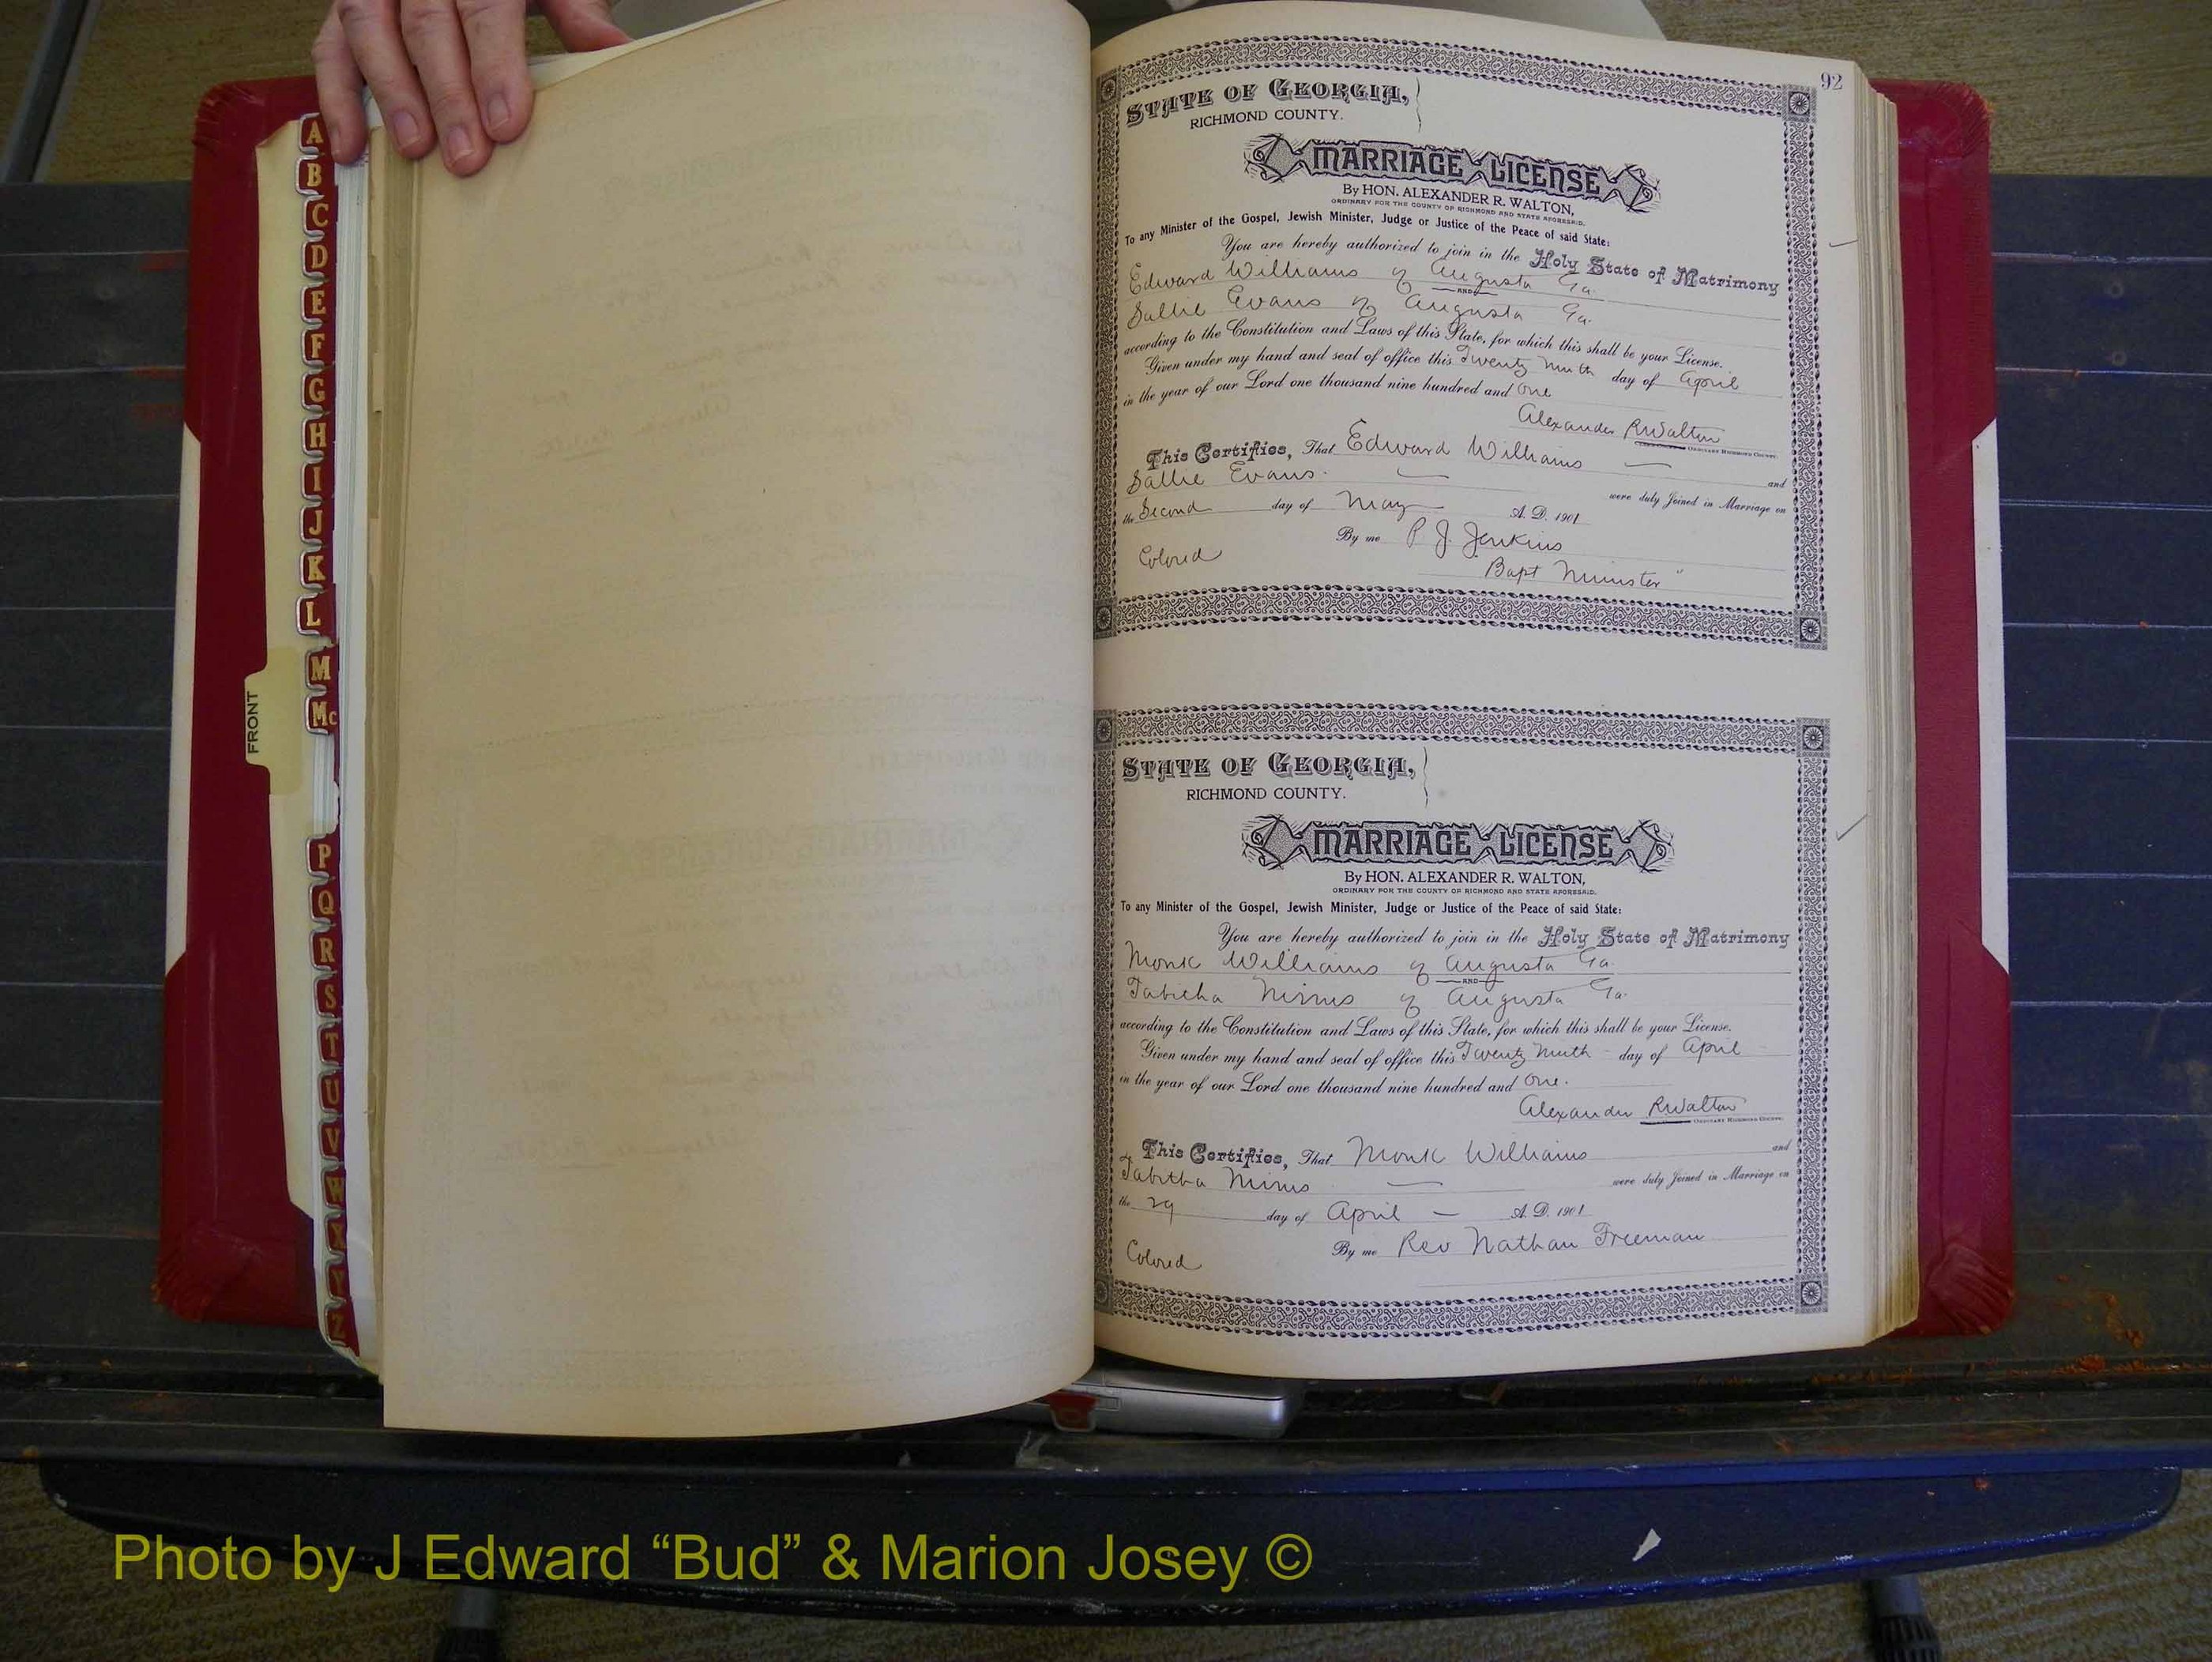 A
B
C
D
E
F
G
H
I
J
K
L
M
Mc
P
Q
R
S
T
U
V
W
X
Y
Z
FRONT
92
STATE OF GEORGIA,
RICHMOND COUNTY.
MARRIAGE LICENSE
By HON. ALEXANDER R. WALTON,
ORDINARY FOR THE COUNTY OF RICHMOND AND STATE AFORESAID.
To any Minister of the Gospel, Jewish Minister, Judge or Justice of the Peace of said State:
You are hereby authorized to join in the Holy State of Matrimony
Edward Williams of Augusta Ga.
AND
Sallie Evans of Augusta Ga.
according to the Constitution and Laws of this State, for which this shall be your License.
Given under my hand and seal of office this Twenty Ninth day of April
in the year of our Lord one thousand nine hundred and One
Alexander R Walton
ORDINARY RICHMOND COUNTY.
This Certifies, That Edward Williams and
Sallie Evans. were duly Joined in Marriage on
the Second day of May A. D. 1901
By me P. J. Jenkins
Colored Bapt Minister
STATE OF GEORGIA,
RICHMOND COUNTY.
MARRIAGE LICENSE
By HON. ALEXANDER R. WALTON,
ORDINARY FOR THE COUNTY OF RICHMOND AND STATE AFORESAID.
To any Minister of the Gospel, Jewish Minister, Judge or Justice of the Peace of said State:
You are hereby authorized to join in the Holy State of Matrimony
Monk Williams of Augusta Ga.
AND
Tabitha Mims of Augusta Ga.
according to the Constitution and Laws of this State, for which this shall be your License.
Given under my hand and seal of office this Twenty Ninth - day of April
in the year of our Lord one thousand nine hundred and One.
Alexander R Walton
ORDINARY RICHMOND COUNTY.
This Certifies, That Monk Williams and
Tabitha Mims were duly Joined in Marriage on
the 29 day of April A. D. 1901
By me Rev Nathan Freeman
Colored
Photo by J Edward “Bud” & Marion Josey ©